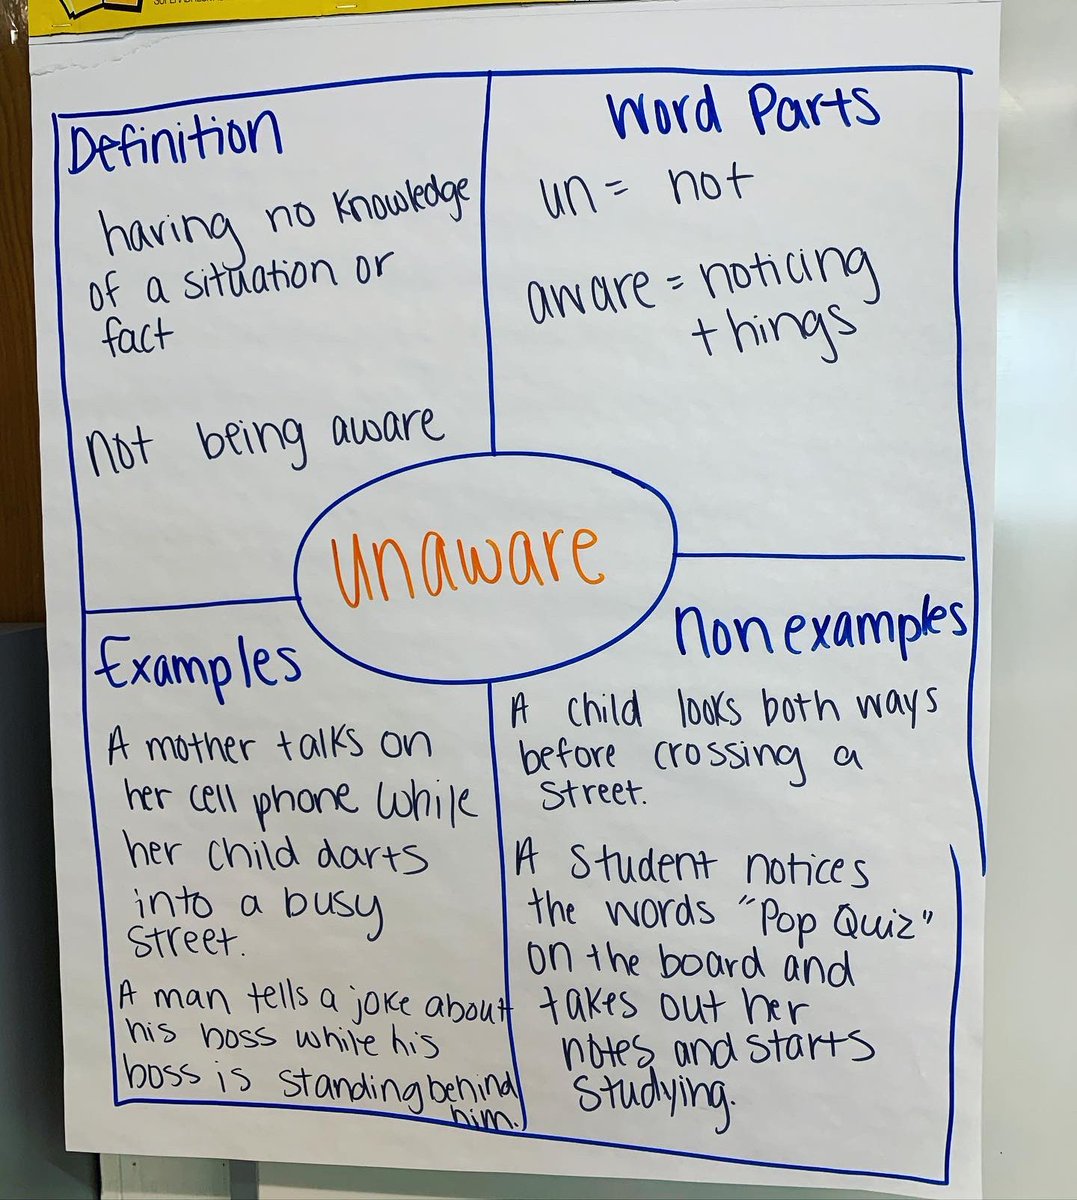 Definition
having no knowledge
of a situation or
fact
not being aware
Word Parts
un = not
aware = noticing
things
unaware
Examples
A mother talks on
her cell phone while
her child darts
into a busy
street.
A man tells a joke about
his boss while his
boss is standing behind
him.
Nonexamples
A child looks both ways
before crossing a
street.
A student notices
the words "Pop Quiz"
on the board and
takes out her
notes and starts
studying.